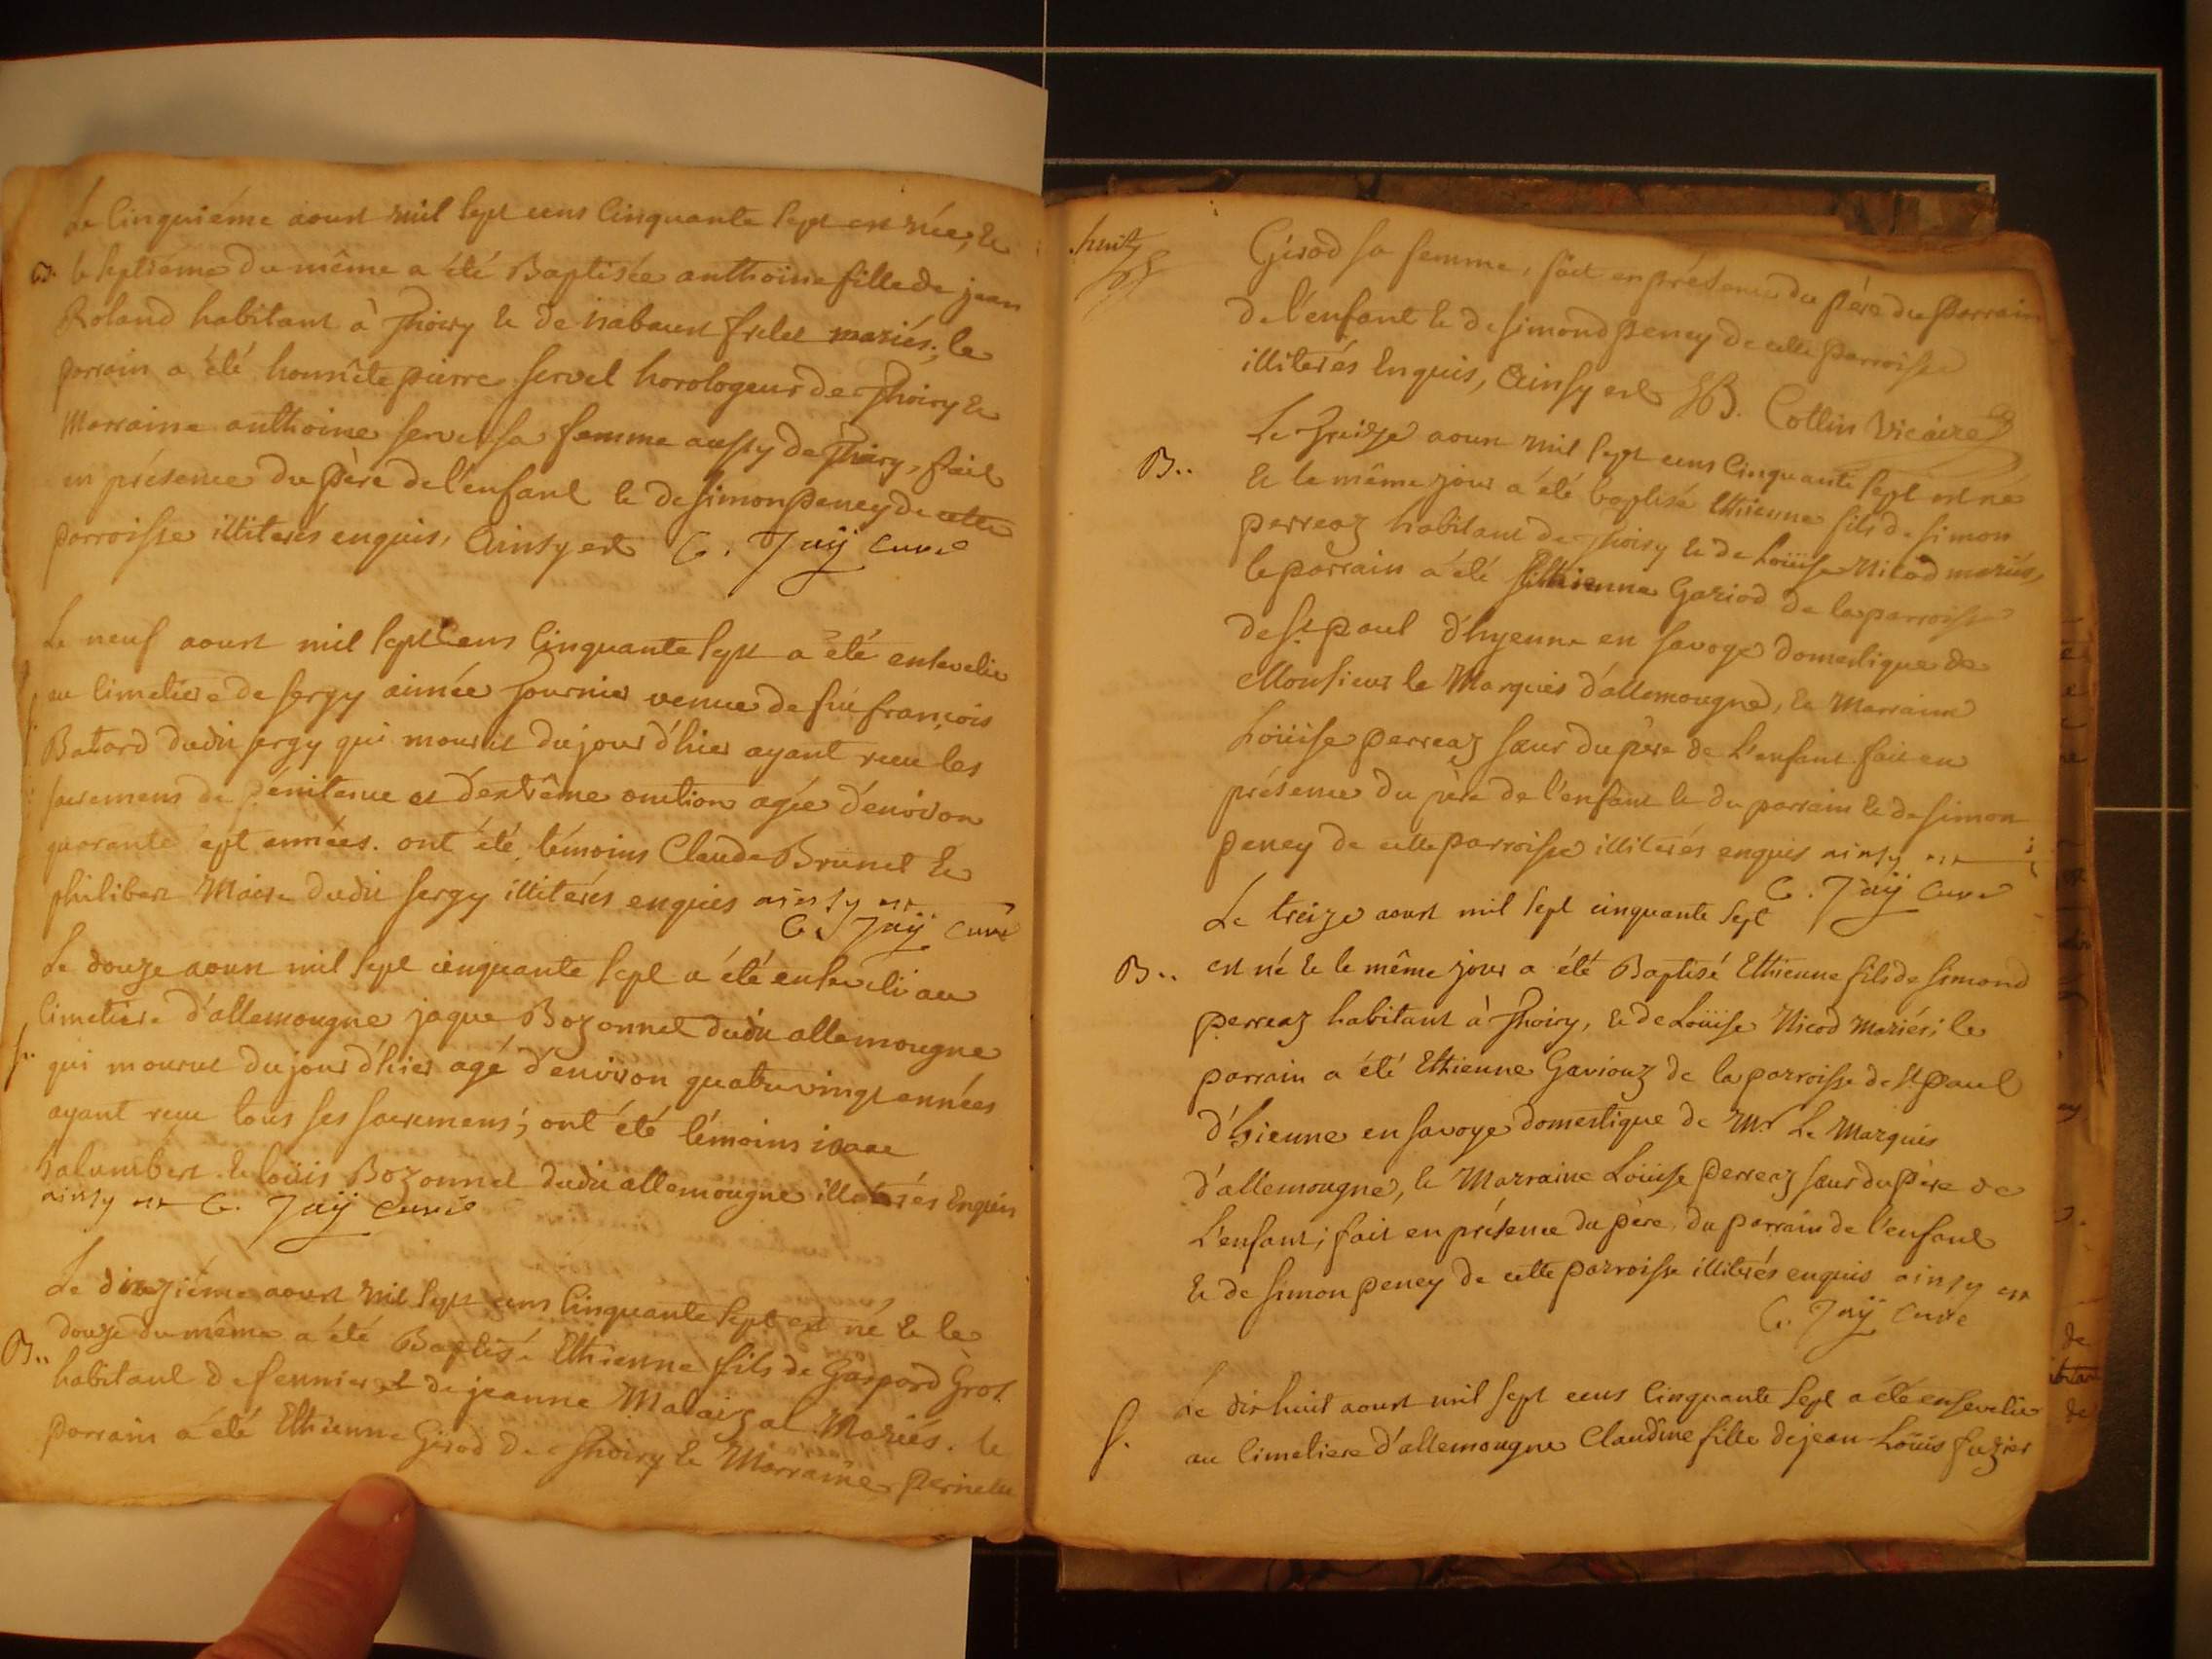 Le Cinquiéme aoust mil sept cens Cinquante sept est née, &
B.. le septiéme du même a été Baptisée anthoine fille de jean
Roland habitant à Thoiry & de frelet mariés; le
parrain a été honnête pierre servel horologeur de Thoiry &
Marraine anthoine servel sa femme aussy de Thoiry, fait
en présence du Père de l'enfant & de simon Peney de cette
parroisse illiterés enquis, Ainsy est C. Jaÿ Curé
Le neuf aoust mil sept Cens Cinquante sept a été ensevelie
au Cimetiere de sergy aimée fournier veuve de feu françois
Batard dudit sergy qui mourut du jour d'hier ayant receu les
sacremens de pénitence et d'extrême onction agée d'environ
quarante sept années. ont été témoins Claude Brunet &
philibert Maire dudit sergy illiterés enquis ainsy est
C. Jaÿ Curé
Le douze aoust mil sept cinquante sept a été enseveli au
Cimetiere d'allemougne jaque Bozonnet dudit allemougne
s.. qui mourut du jour d'hier agé d'environ quatrevingt années
ayant receu tous ses sacremens; ont été témoins isaac
Balumbert & loüis Bozonnet dudit allemougne illiterés Enquis
ainsy est C. Jaÿ Curé
Le aoust mil sept cens Cinquante sept est né & le
douze du même a été Baptisé Ethienne fils de Gaspard Gros
B.. habitant de fennier et de jeanne Malaizal Mariés. le
parrain a été Ethienne Girod de Thoiry & Marraine Pernette
huit
Girod sa femme, fait en présence du Père du Parrain
de l'enfant & de simond Peney de cette parroisse
illiterés Enquis, Ainsy est JB. Collin Vicaire
Le Treize aoust mil sept cens Cinquante sept est né
B.. & le même jour a été baptisé Ethienne fils de simon
perreaz habitant de Thoiry & de Loüise Nicod mariés,
le parrain a été Ethienne Gariod de la parroisse
de st paul d'hyenne en savoye domestique de
Monsieur le Marquis d'allemougne, & Marraine
Loüise perreaz sœur du père de L'enfant fait en
présence du père de l'enfant & du parrain & de simon
peney de cette parroisse illiterés enquis ainsy est
C. Jaÿ Curé
Le treize aoust mil sept cinquante sept
B.. est né & le même jour a été Baptisé Ethienne fils de simond
perreaz habitant à Thoiry, & de Loüise Nicod Mariés; le
parrain a été Ethienne Gaviouz de la parroisse de st Paul
d'hienne en savoye domestique de Mr Le Marquis
d'allemougne, & Marraine Loüise perreaz sœur du Père de
L'enfant; fait en présence du père, du parrain de l'enfant
& de simon peney de cette parroisse illiterés enquis ainsy est
C. Jaÿ Curé
s. Le dix huit aoust mil sept cens Cinquante sept a été ensevelie
au Cimetiere d'allemougne Claudine fille de jean Loüis fuzier